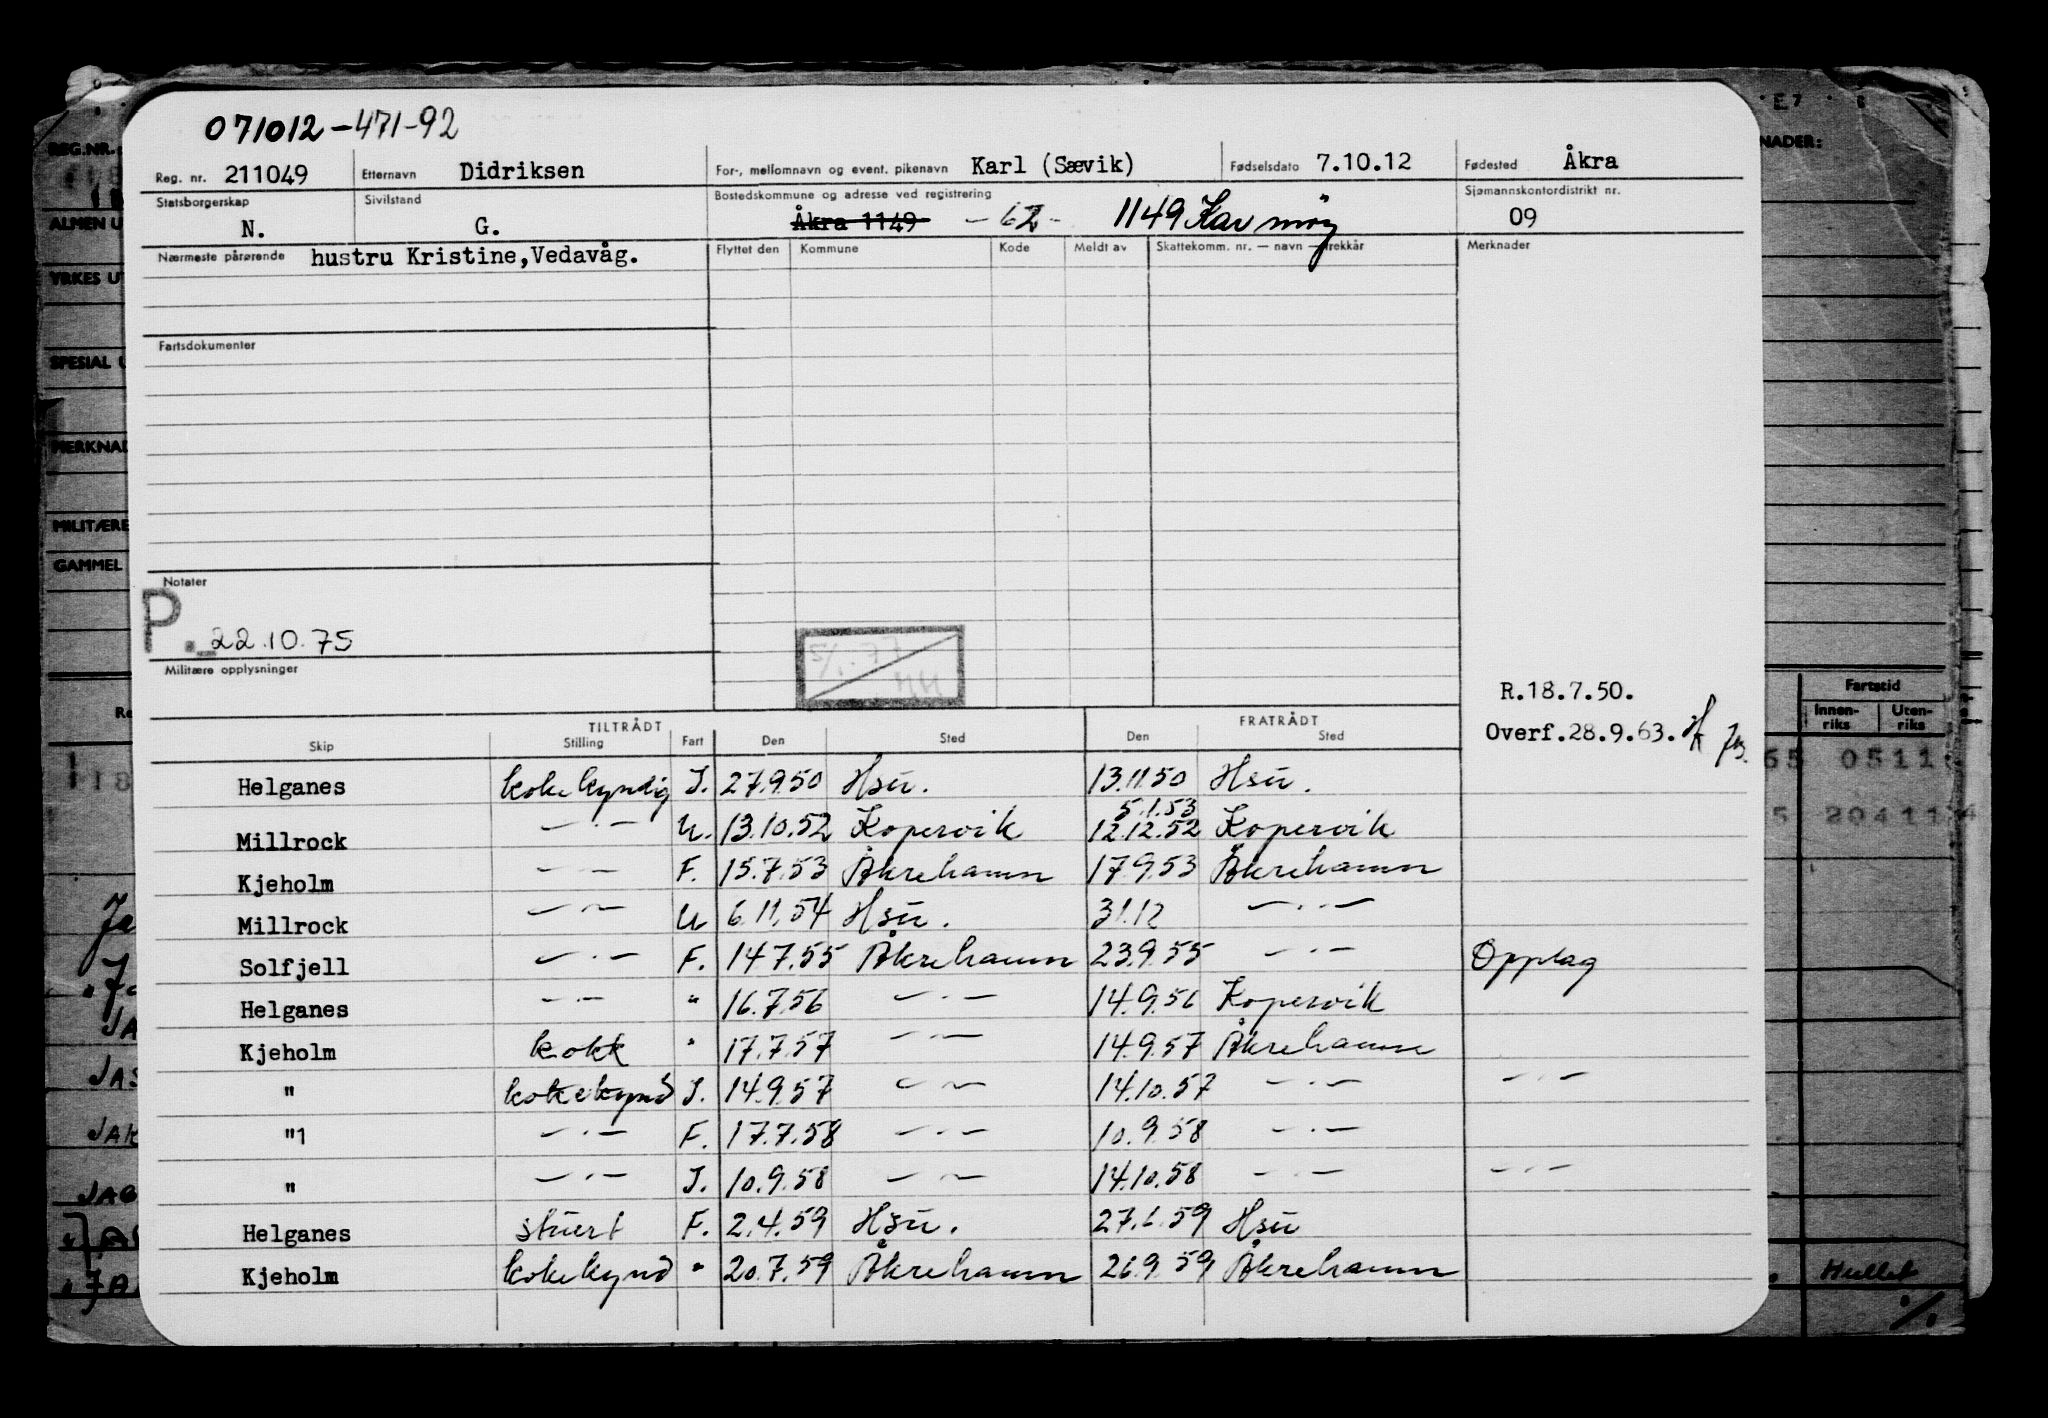 071012-471-92
Reg. nr. 211049 Etternavn Didriksen For-, mellomnavn og event. pikenavn Karl (Sævik) Fødselsdato 7.10.12 Fødested Åkra
Statsborgerskap N. Sivilstand G. Bostedskommune og adresse ved registrering Åkra 1149 -62- 1149 Karmøy Sjømannskontordistrikt nr. 09
Nærmeste pårørende hustru Kristine,Vedavåg. Flyttet den Kommune Kode Meldt av Skattekomm. nr. — navn — trekkår Merknader
Fartsdokumenter
Notater
P. 22.10.75
Militære opplysninger
R.18.7.50.
Overf.28.9.63.
TILTRÅDT FRATRÅDT
Skip Stilling Fart Den Sted Den Sted
Helganes kokekyndig I. 27.9.50 Hsu. 13.11.50 Hsu.
5.1.53
Millrock —·— U. 13.10.52 Kopervik 12.12.52 Kopervik
Kjeholm —·— F. 15.7.53 Åkrehamn 17.9.53 Åkrehamn
Millrock —·— U 6.11.54 Hsu. 31.12 —·—
Solfjell —·— F. 14.7.55 Åkrehamn 23.9.55 —·— Opplag
Helganes —·— " 16.7.56 —·— 14.9.56 Kopervik
Kjeholm kokk " 17.7.57 —·— 14.9.57 Åkrehamn
" kokekynd I. 14.9.57 —·— 14.10.57 —·— —·—
"1 —·— F. 17.7.58 —·— 10.9.58 —·—
" —·— I. 10.9.58 —·— 14.10.58 —·— —·—
Helganes stuert F. 2.4.59 Hsu. 27.6.59 Hsu
Kjeholm kokekynd " 20.7.59 Åkrehamn 26.9.59 Åkrehamn
REG.NR.
ALMEN U
YRKES U
SPESIAL U
MERKNAD
MILITÆRE
GAMMEL
E7
NADER:
Fartstid
Innen-riks Uten-riks
65 0511
5 20411